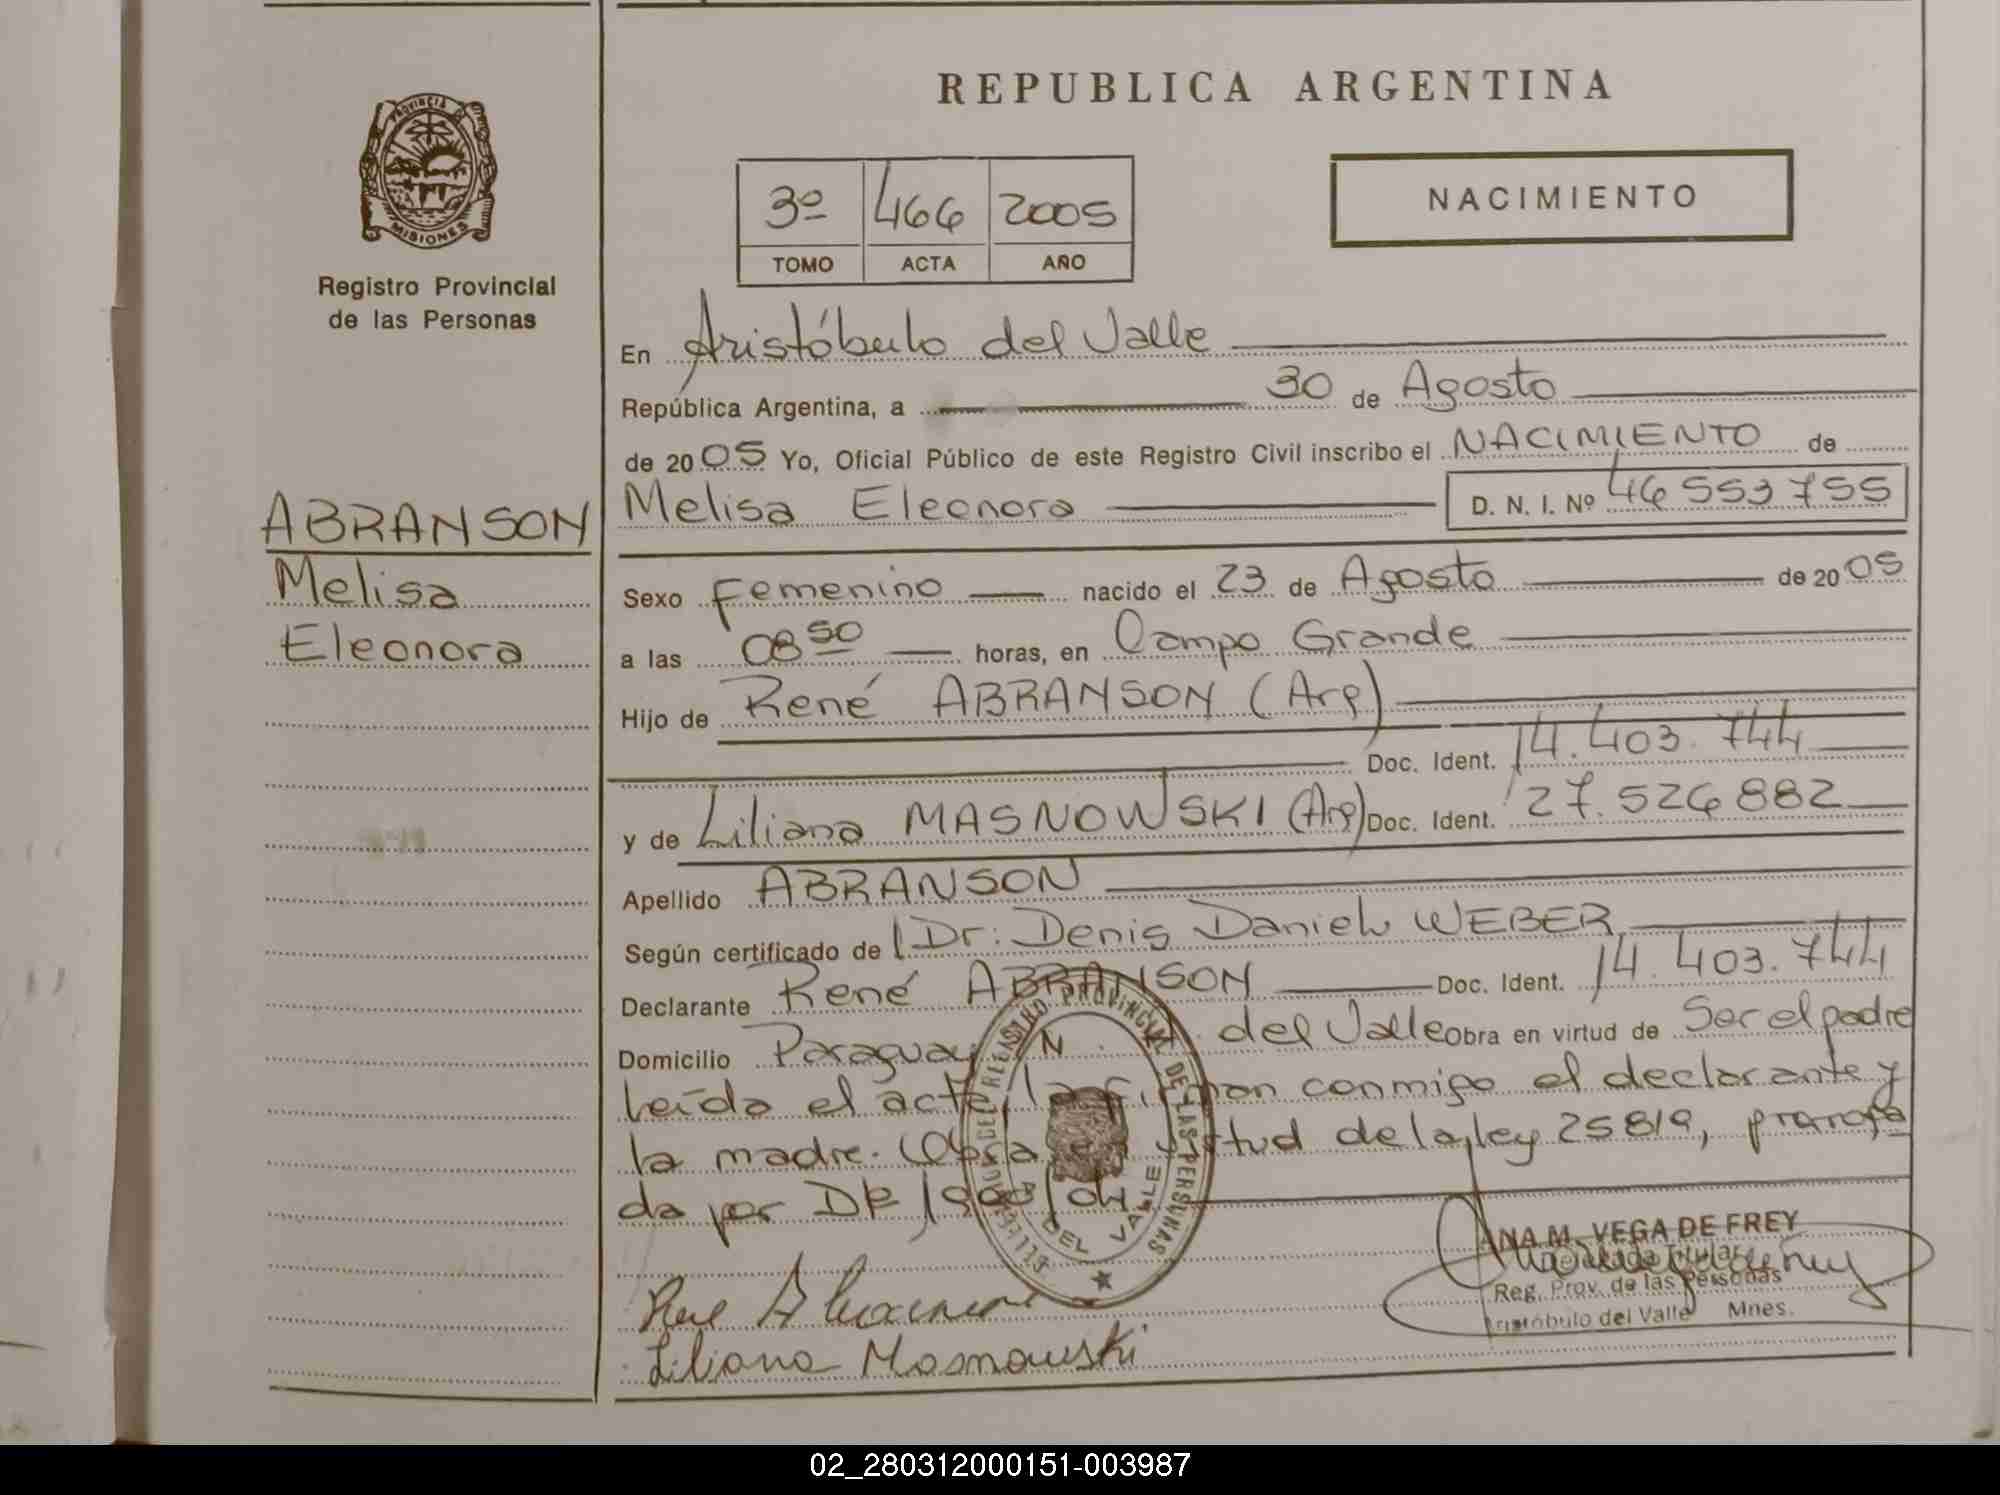 PROVINCIA
MISIONES
Registro Provincial
de las Personas
ABRANSON
Melisa
Eleonora
REPUBLICA ARGENTINA
3º 466 2005
TOMO ACTA AÑO
NACIMIENTO
En Aristóbulo del Valle
República Argentina, a 30 de Agosto
de 2005 Yo, Oficial Público de este Registro Civil inscribo el NACIMIENTO de
Melisa Eleonora D. N. I. Nº 46 553 755
Sexo Femenino nacido el 23 de Agosto de 2005
a las 08 50 horas, en Campo Grande
Hijo de René ABRANSON (Arg)
Doc. Ident. 14.403.744
y de Liliana MASNOWSKI (Arg) Doc. Ident. 27.526 882
Apellido ABRANSON
Según certificado de Dr: Denis Daniel WEBER
Declarante René ABRANSON Doc. Ident. 14.403.744
Domicilio Paraguay N del Valle Obra en virtud de Ser el padre
Leída el acta, la firman conmigo el declarante y
la madre. Obra en virtud de la ley 25819, prorroga
da por
REGISTRO PROVINCIAL DE LAS PERSONAS
DEL VALLE
ANA M. VEGA DE FREY
Titular
Reg. Prov. de las Personas
Aristóbulo del Valle Mnes.
Liliana Masnowski
02_280312000151-003987